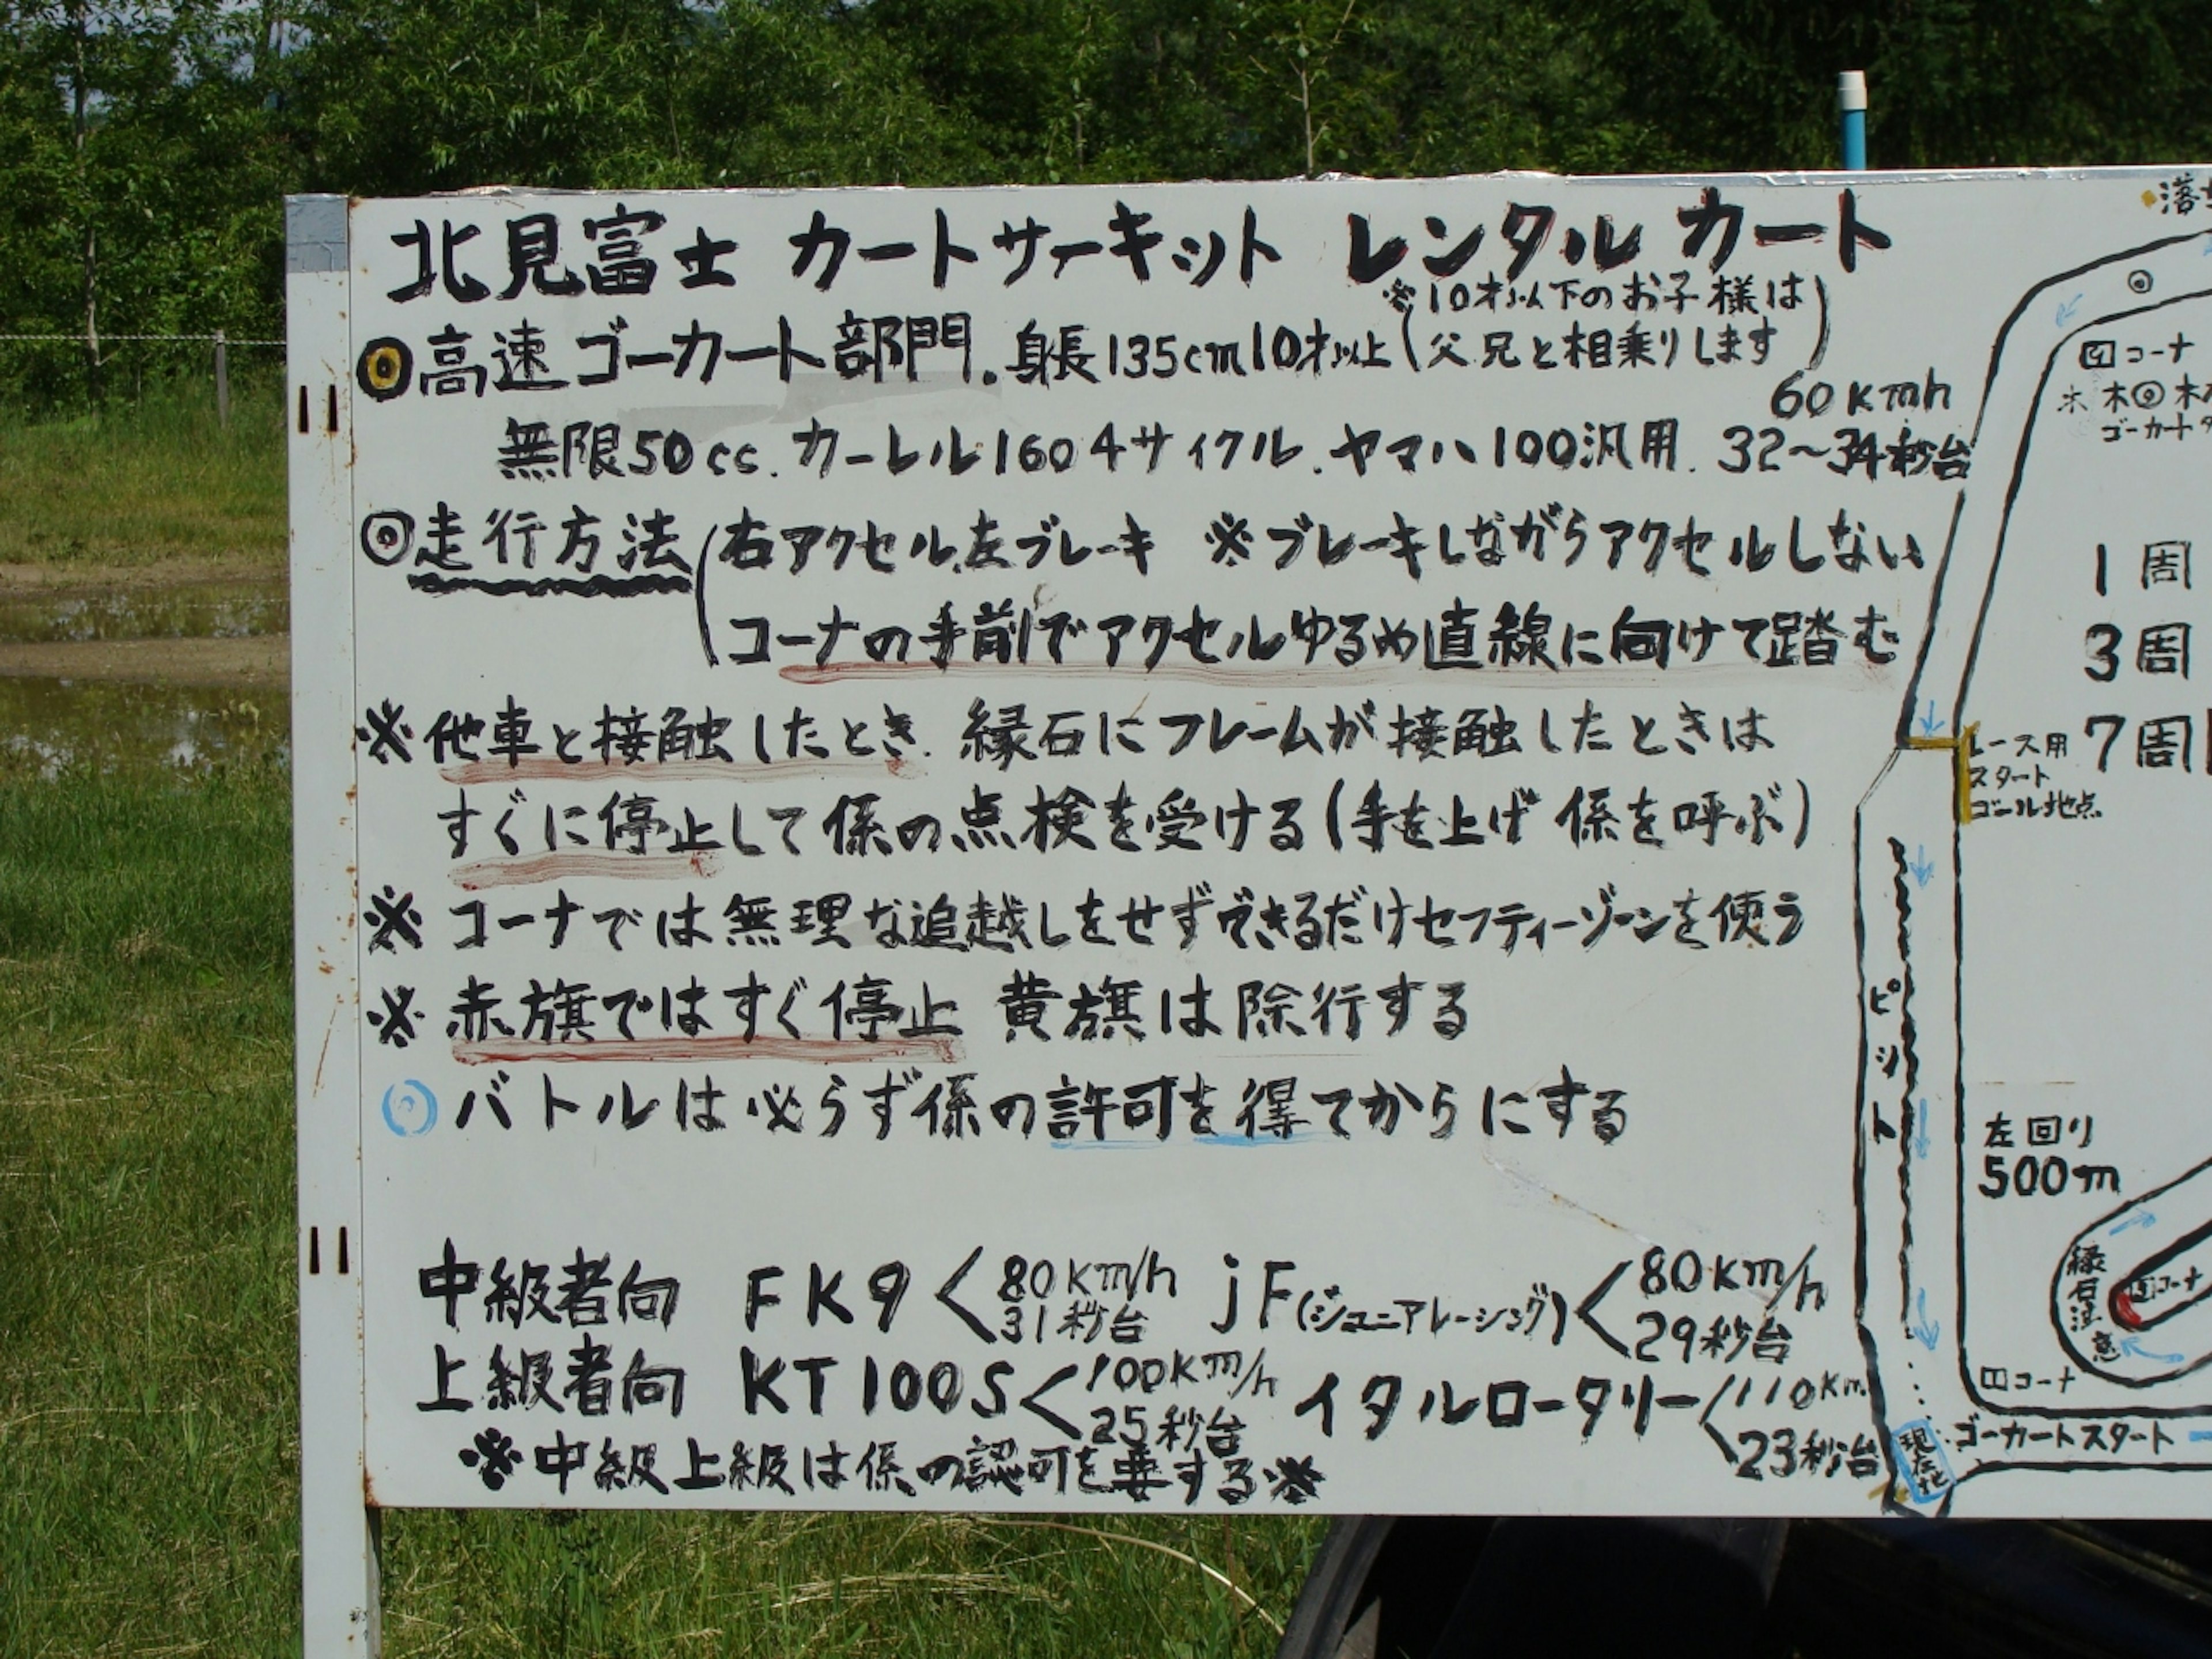 北見富士 カートサーキット レンタルカート
◎高速ゴーカート部門.身長135cm10才以上(※10才以下のお子様は
父兄と相乗りします)
60kmh
無限50cc.カーレル160 4サイクル.ヤマハ100汎用.32~34秒台
◎走行方法(右アクセル.左ブレーキ ※ブレーキしながらアクセルしない
コーナの手前でアクセルゆるめ直線に向けて踏む
※他車と接触したとき.縁石にフレームが接触したときは
すぐに停止して係の点検を受ける(手を上げ 係を呼ぶ)
※コーナでは無理な追越しをせずできるだけセフティーゾーンを使う
※赤旗ではすぐ停止 黄旗は除行する
◎バトルは必らず係の許可を得てからにする
中級者向 FK9<80km/h 31秒台 jF(ジュニアレーシング)<80km/h 29秒台
上級者向 KT100S<100km/h 25秒台 イタルロータリー<110km 23秒台
※中級上級は係の認可を要する※
落
4コーナ
ゴーカート
1周
3周
7周
レース用
スタート
ゴール地点
ピット
左回り
500m
縁石注意
コーナ
1コーナ
ゴーカートスタート
現在地